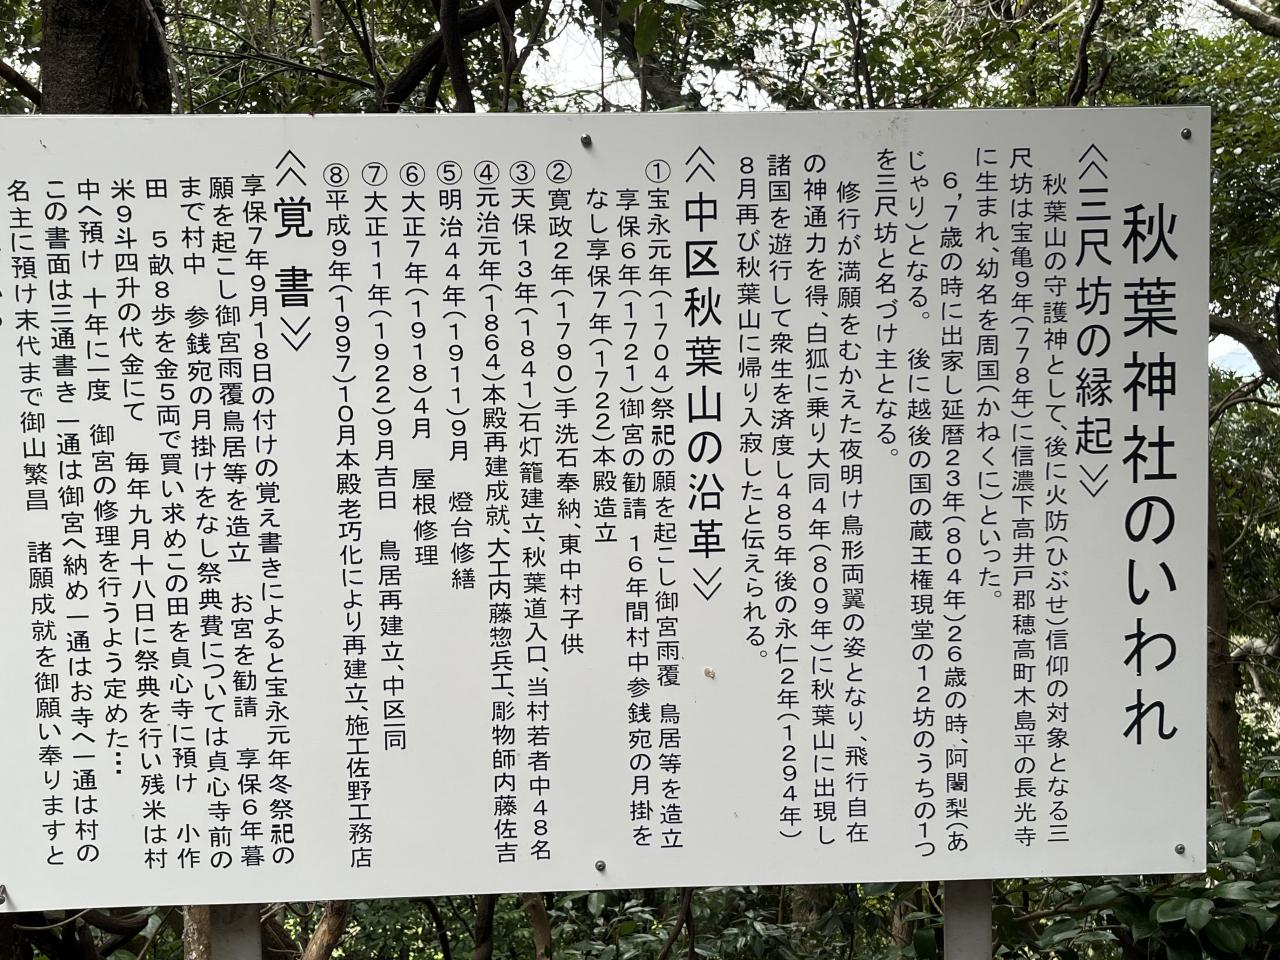 秋葉神社のいわれ
≪三尺坊の縁起≫
秋葉山の守護神として、後に火防(ひぶせ)信仰の対象となる三
尺坊は宝亀9年(778年)に信濃下高井戸郡穂高町木島平の長光寺
に生まれ、幼名を周国(かねくに)といった。
6,7歳の時に出家し延暦23年(804年)26歳の時、阿闍梨(あ
じゃり)となる。 後に越後の国の蔵王権現堂の12坊のうちの1つ
を三尺坊と名づけ主となる。
修行が満願をむかえた夜明け鳥形両翼の姿となり、飛行自在
の神通力を得、白狐に乗り大同4年(809年)に秋葉山に出現し
諸国を遊行して衆生を済度し485年後の永仁2年(1294年)
8月再び秋葉山に帰り入寂したと伝えられる。
≪中区秋葉山の沿革≫
①宝永元年(1704)祭祀の願を起こし御宮雨覆 鳥居等を造立
享保6年(1721)御宮の勧請 16年間村中参銭宛の月掛を
なし享保7年(1722)本殿造立
②寛政2年(1790)手洗石奉納、東中村子供
③天保13年(1841)石灯籠建立、秋葉道入口、当村若者中48名
④元治元年(1864)本殿再建成就、大工内藤惣兵工、彫物師内藤佐吉
⑤明治44年(1911)9月 燈台修繕
⑥大正7年(1918)4月 屋根修理
⑦大正11年(1922)9月吉日 鳥居再建立、中区一同
⑧平成9年(1997)10月本殿老巧化により再建立、施工佐野工務店
≪覚 書≫
享保7年9月18日の付けの覚え書きによると宝永元年冬祭祀の
願を起こし御宮雨覆鳥居等を造立 お宮を勧請 享保6年暮
まで村中 参銭宛の月掛けをなし祭典費については貞心寺前の
田 5畝8歩を金5両で買い求めこの田を貞心寺に預け 小作
米9斗四升の代金にて 毎年九月十八日に祭典を行い残米は村
中へ預け 十年に一度 御宮の修理を行うよう定めた…
この書面は三通書き 一通は御宮へ納め 一通はお寺へ一通は村の
名主に預け末代まで御山繁昌 諸願成就を御願い奉りますと